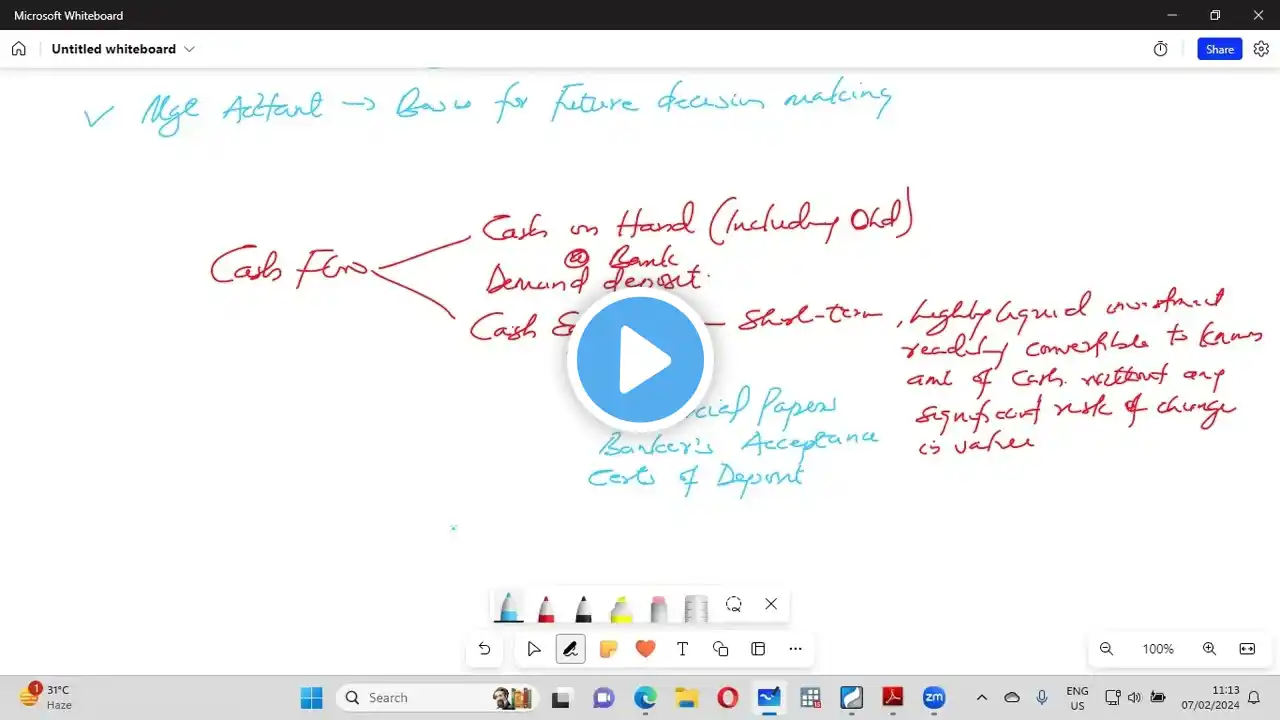 Microsoft Whiteboard
Untitled whiteboard
Share
Mge Acctant → Basis for Future decision making
Cash on Hand (Including Ohd)
@ Bank
Demand deposit
Cash
Cash
Short-term, highly liquid investment
readily convertible to known
amt of Cash without any
significant risk of change
is value
Papers
Banker's Acceptance
Certs of Deposit
100%
1
31°C
Haze
Search
ENG
US
11:13
07/02/2024